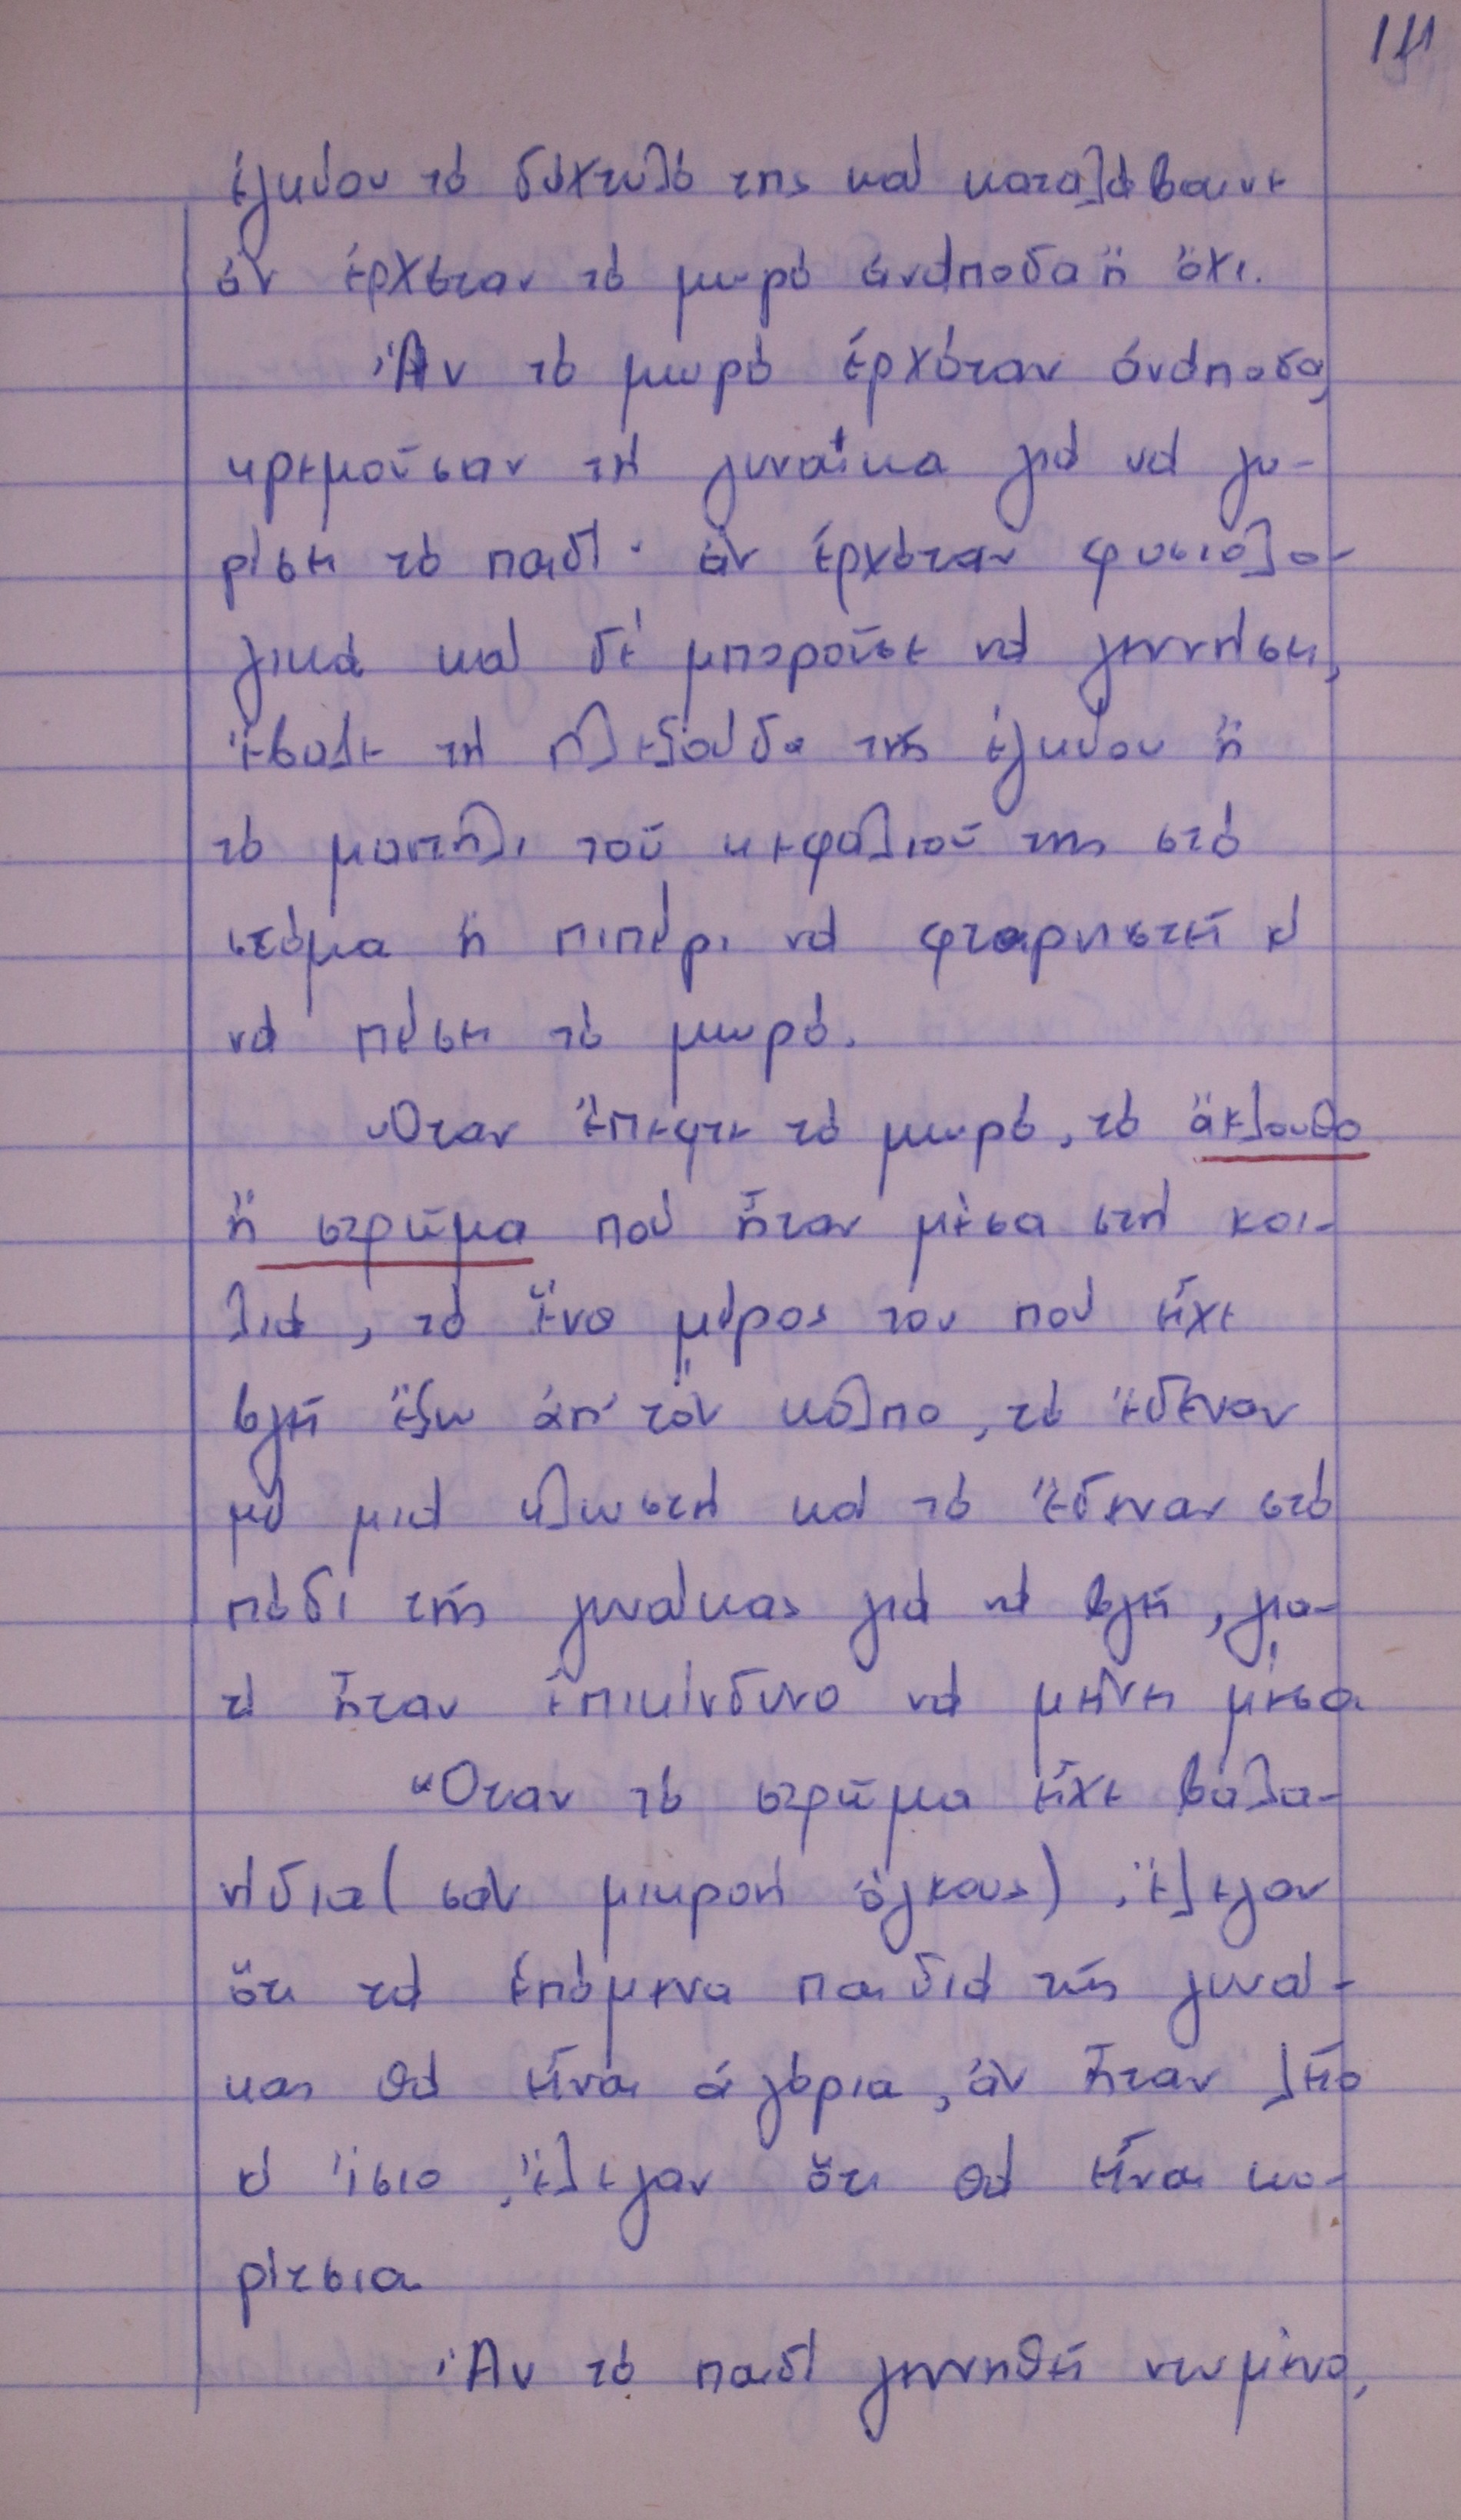 111
ἐγκύου τό δάχτυλό της καί καταλάβαινε
ἄν ἐρχόταν τό μωρό ἀνάποδα ἤ ὄχι.
Ἄν τό μωρό ἐρχόταν ἀνάποδα,
κρεμοῦσαν τή γυναῖκα γιά νά γυ-
ρίσει τό παιδί· ἄν ἐρχόταν φυσιολο-
γικά καί δέ μποροῦσε νά γεννήσει,
ἔβαζε τή πλεξούδα τῆς ἐγκύου ἤ
τό μαντήλι τοῦ κεφαλιοῦ της στό
στόμα ἤ πιπέρι νά φταρνιστεῖ κ'
νά πέσει τό μωρό.
Ὅταν ἔπεφτε τό μωρό, τό ἄκλουθο
ἤ στρῶμα πού ἦταν μέσα στή κοι-
λιά, τό ἕνα μέρος του πού εἶχε
βγεῖ ἔξω ἀπ' τόν κόλπο, τό ἔδεναν
μέ μιά κλωστή καί τό ἔδεναν στό
πόδι τῆς γυναίκας γιά νά βγεῖ, για-
τί ἦταν ἐπικίνδυνο νά μείνει μέσα
Ὅταν τό στρῶμα εἶχε βαλα-
νίδια (σάν μικρούς ὄγκους), ἔλεγαν
ὅτι τά ἑπόμενα παιδιά τῆς γυναί-
κας θά εἶναι ἀγόρια, ἄν ἦταν λεῖο
κ' ἴσιο, ἔλεγαν ὅτι θά εἶναι κο-
ρίτσια
Ἄν τό παιδί γεννηθεῖ ντυμένο,